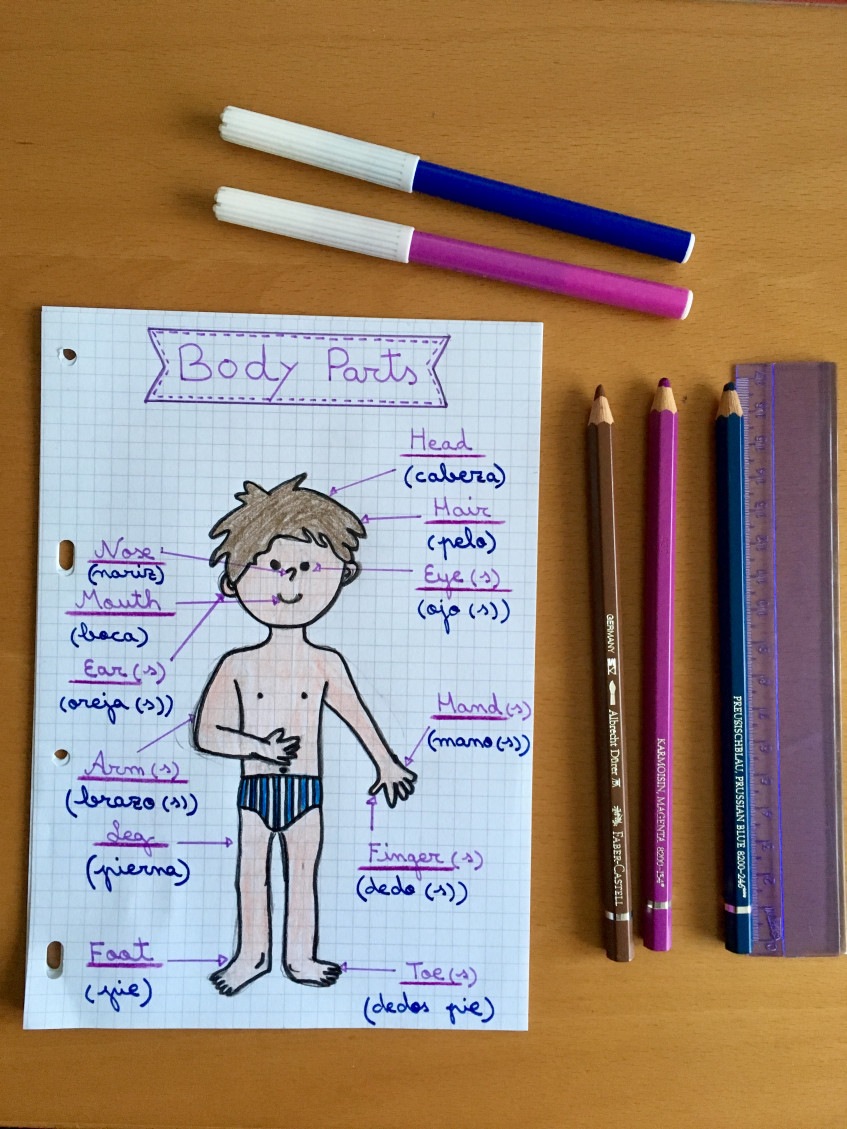 Body Parts
Head
(cabeza)
Hair
(pelo)
Nose
(nariz)
Eye(s)
(ojo(s))
Mouth
(boca)
Ear(s)
(oreja(s))
Hand(s)
(mano(s))
Arm(s)
(brazo(s))
Leg
(pierna)
Finger(s)
(dedo(s))
Foot
(pie)
Toe(s)
(dedos pie)
GERMANY Albrecht Dürer FABER-CASTELL
KARMOISIN, MAGENTA 8200-134*
PREUßISCHBLAU, PRUSSIAN BLUE 8200-246***